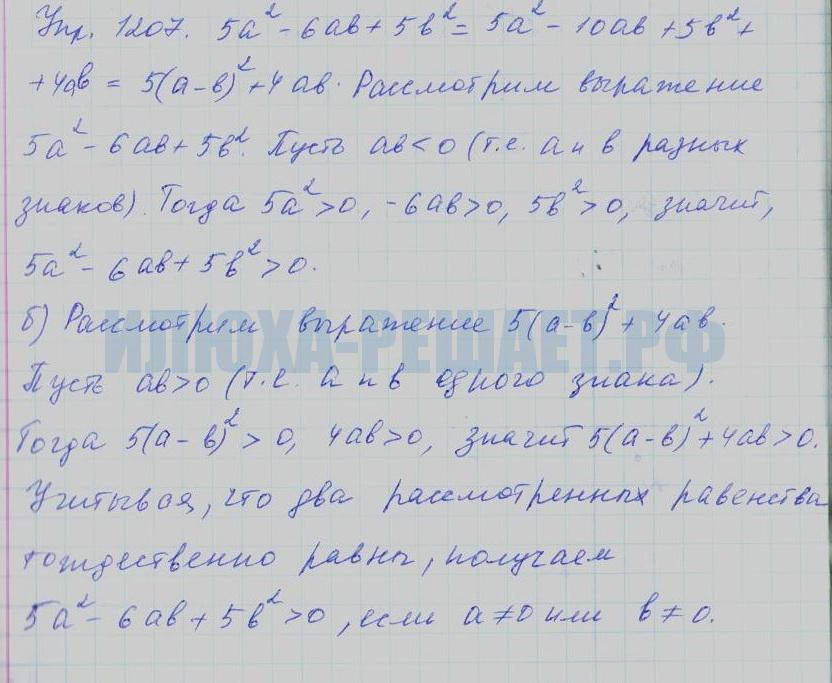 Упр. 1207. 5a² - 6ab + 5b² = 5a² - 10ab + 5b² +
+ 4ab = 5(a-b)² + 4ab. Рассмотрим выражение
5a² - 6ab + 5b². Пусть ab < 0 (т.е. a и b разных
знаков). Тогда 5a² > 0, -6ab > 0, 5b² > 0, значит,
5a² - 6ab + 5b² > 0.
б) Рассмотрим выражение 5(a-b)² + 4ab.
ИЛЮХА-РЕШАЕТ.РФ
Пусть ab > 0 (т.е. a и b одного знака).
Тогда 5(a-b)² > 0, 4ab > 0, значит 5(a-b)² + 4ab > 0.
Учитывая, что два рассмотренных равенства
тождественно равны, получаем
5a² - 6ab + 5b² > 0, если a ≠ 0 или b ≠ 0.